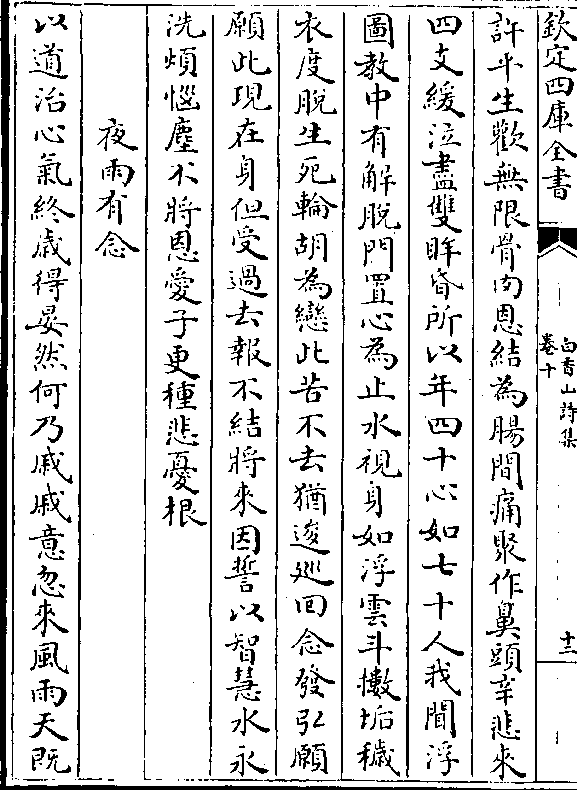 欽定四庫全書
白香山詩集
卷十
十三
許平生歡無限骨肉恩結為腸間痛聚作鼻頭辛悲來
四支緩泣盡雙眸昏所以年四十心如七十人我聞浮
圖教中有解脫門置心為止水視身如浮雲斗擻垢穢
衣度脫生死輪胡為戀此苦不去猶逡廵回念發弘願
願此現在身但受過去報不結將來因誓以智慧水永
洗煩惱塵不將恩愛子更種悲憂根
夜雨有念
以道治心氣終歲得晏然何乃戚戚意忽來風雨天既